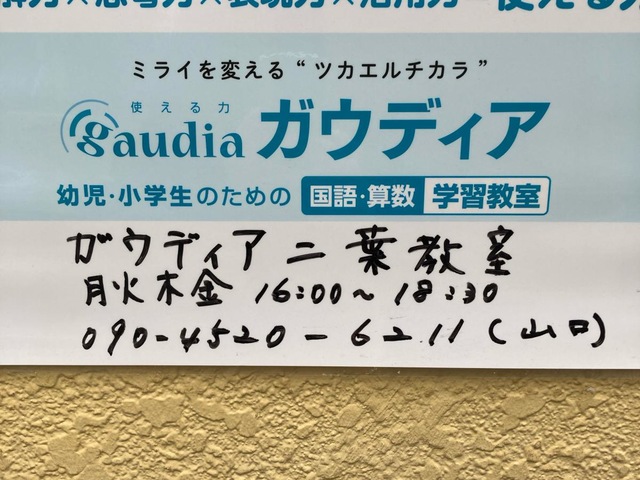 解力×思考力×表現力×活用力
ミライを変える“ツカエルチカラ”
使える力
gaudia ガウディア
幼児・小学生のための 国語・算数 学習教室
ガウディア二葉教室
月火木金 16:00~18:30
090-4520-6211(山口)